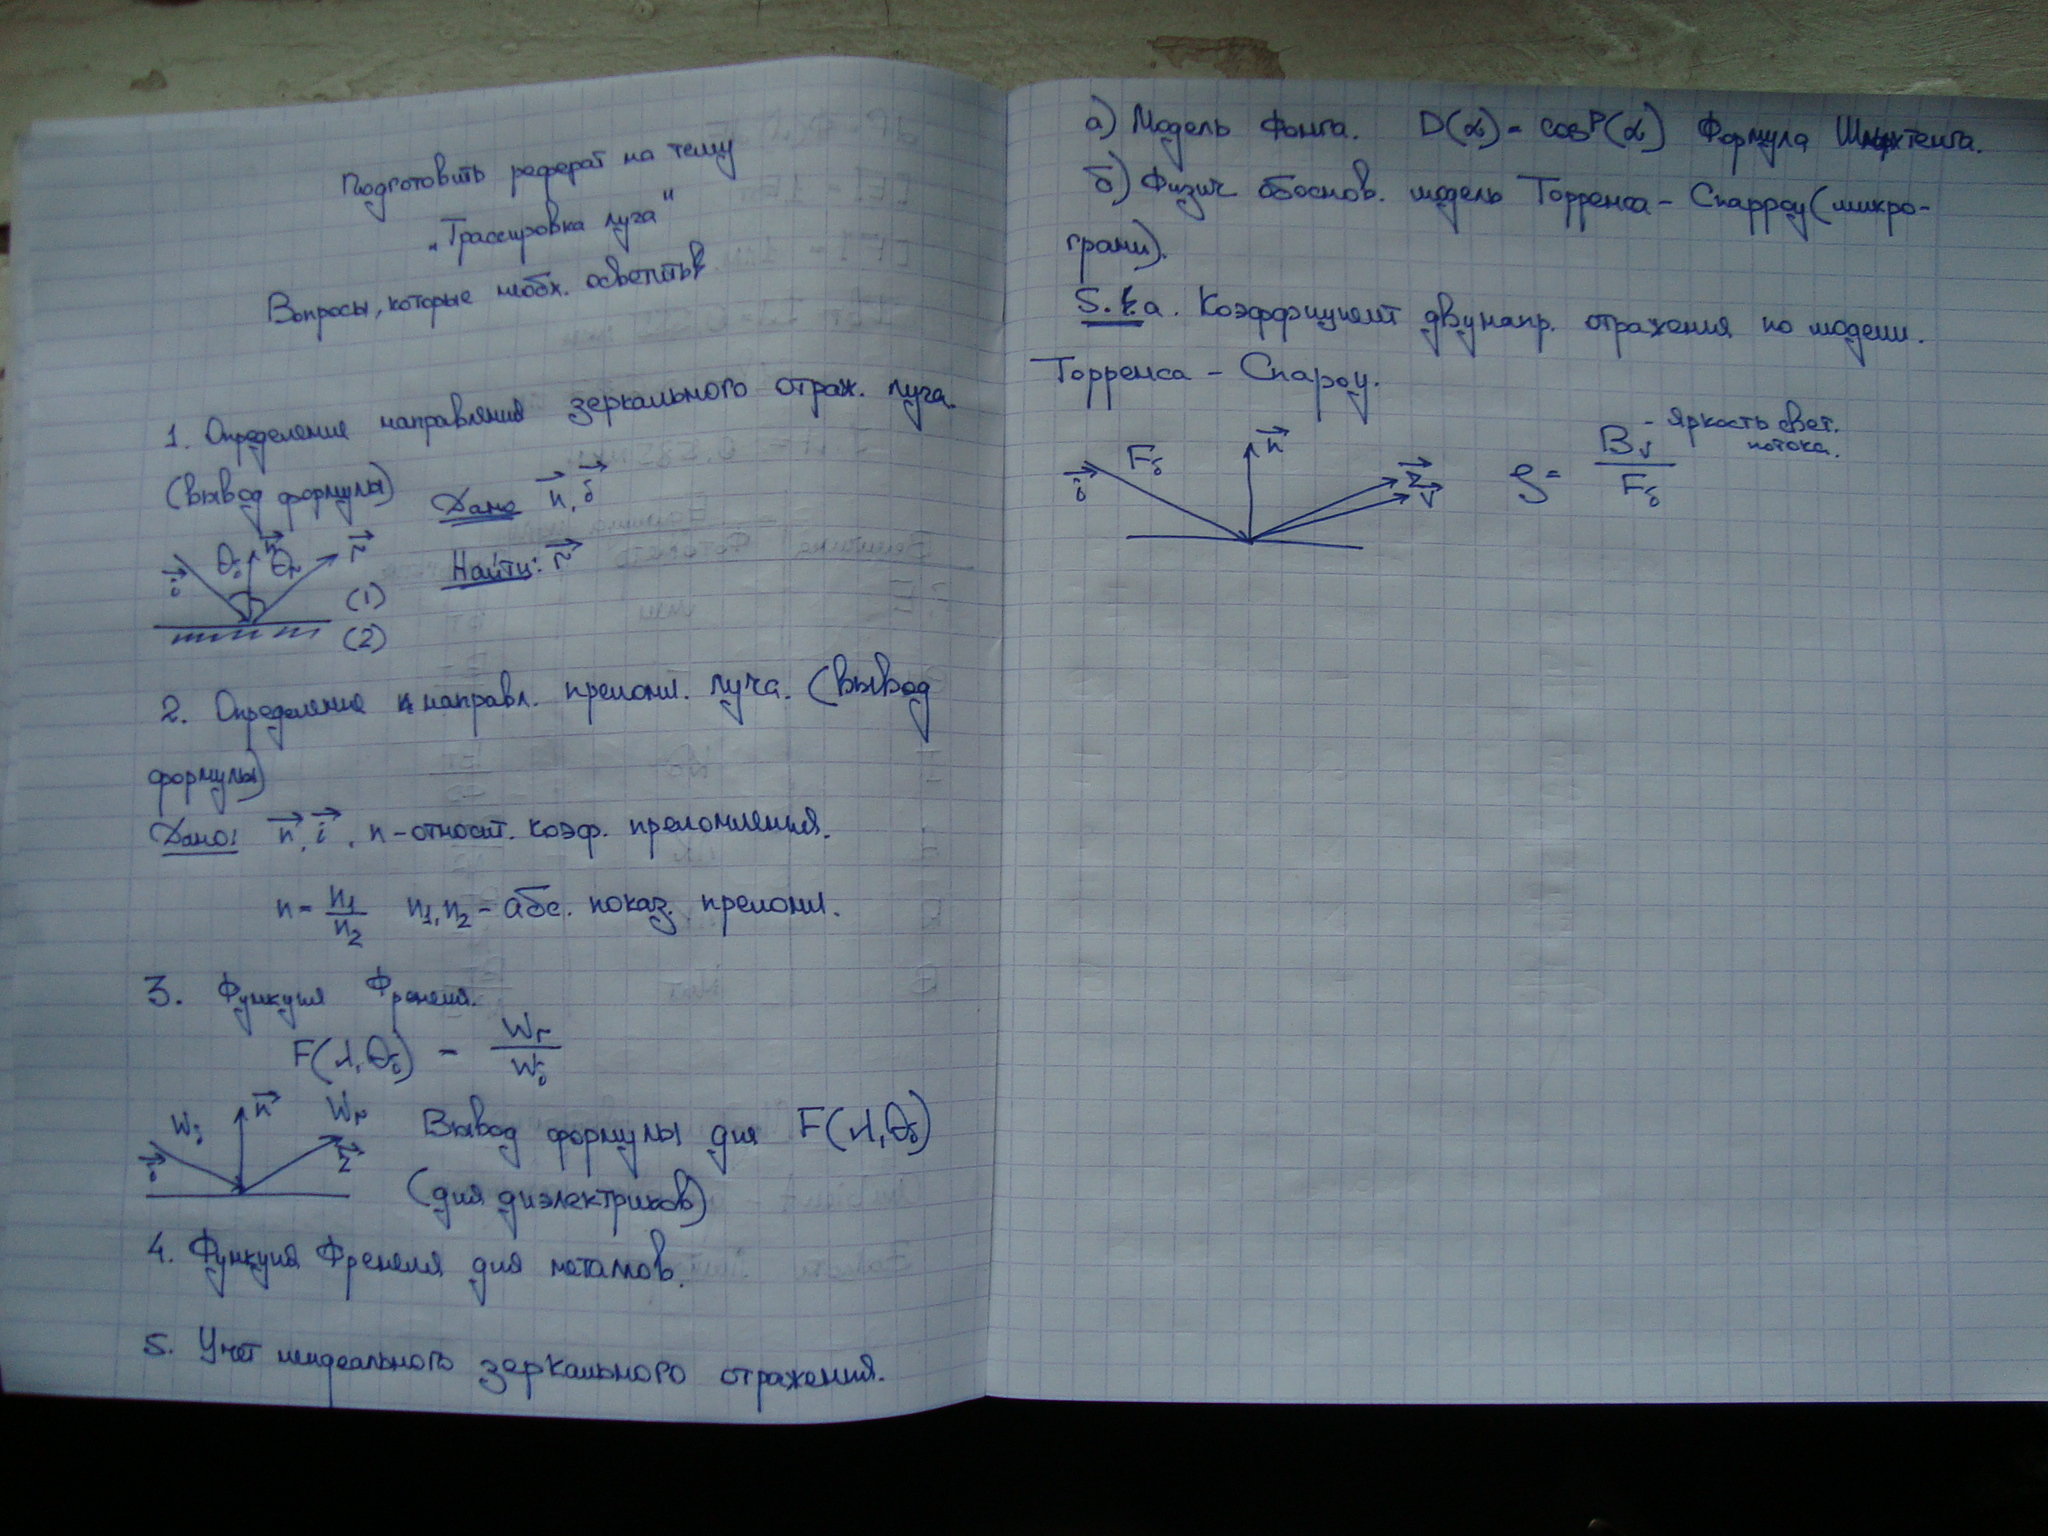 Подготовить реферат на тему
„Трассировка луча"
Вопросы, которые необх. осветить
1. Определение направления зеркального отраж. луча.
(вывод формулы) Дано n, i
Найти: r
i θi n θr r
(1)
(2)
2. Определение направл. преломл. луча. (вывод
формулы)
Дано: n, i, n - относит. коэф. преломления.
n = n1/n2 n1, n2 - абс. показ. преломл.
3. Функция Френеля.
F(λ, θi) = Wr/Wi
Wi n Wr
i r
Вывод формулы для F(λ, θi)
(для диэлектриков)
4. Функция Френеля для металлов.
5. Учет неидеального зеркального отражения.
а) Модель Фонга. D(α) = cosᵖ(α) Формула
б) Физич обоснов. модель Торренса - Спарроу (микро-
грани).
5.а. Коэффициент двунапр. отражения по модели.
Торренса - Спароу.
i Fi n r v
ρ = Bv/Fi - яркость свет.
потока.